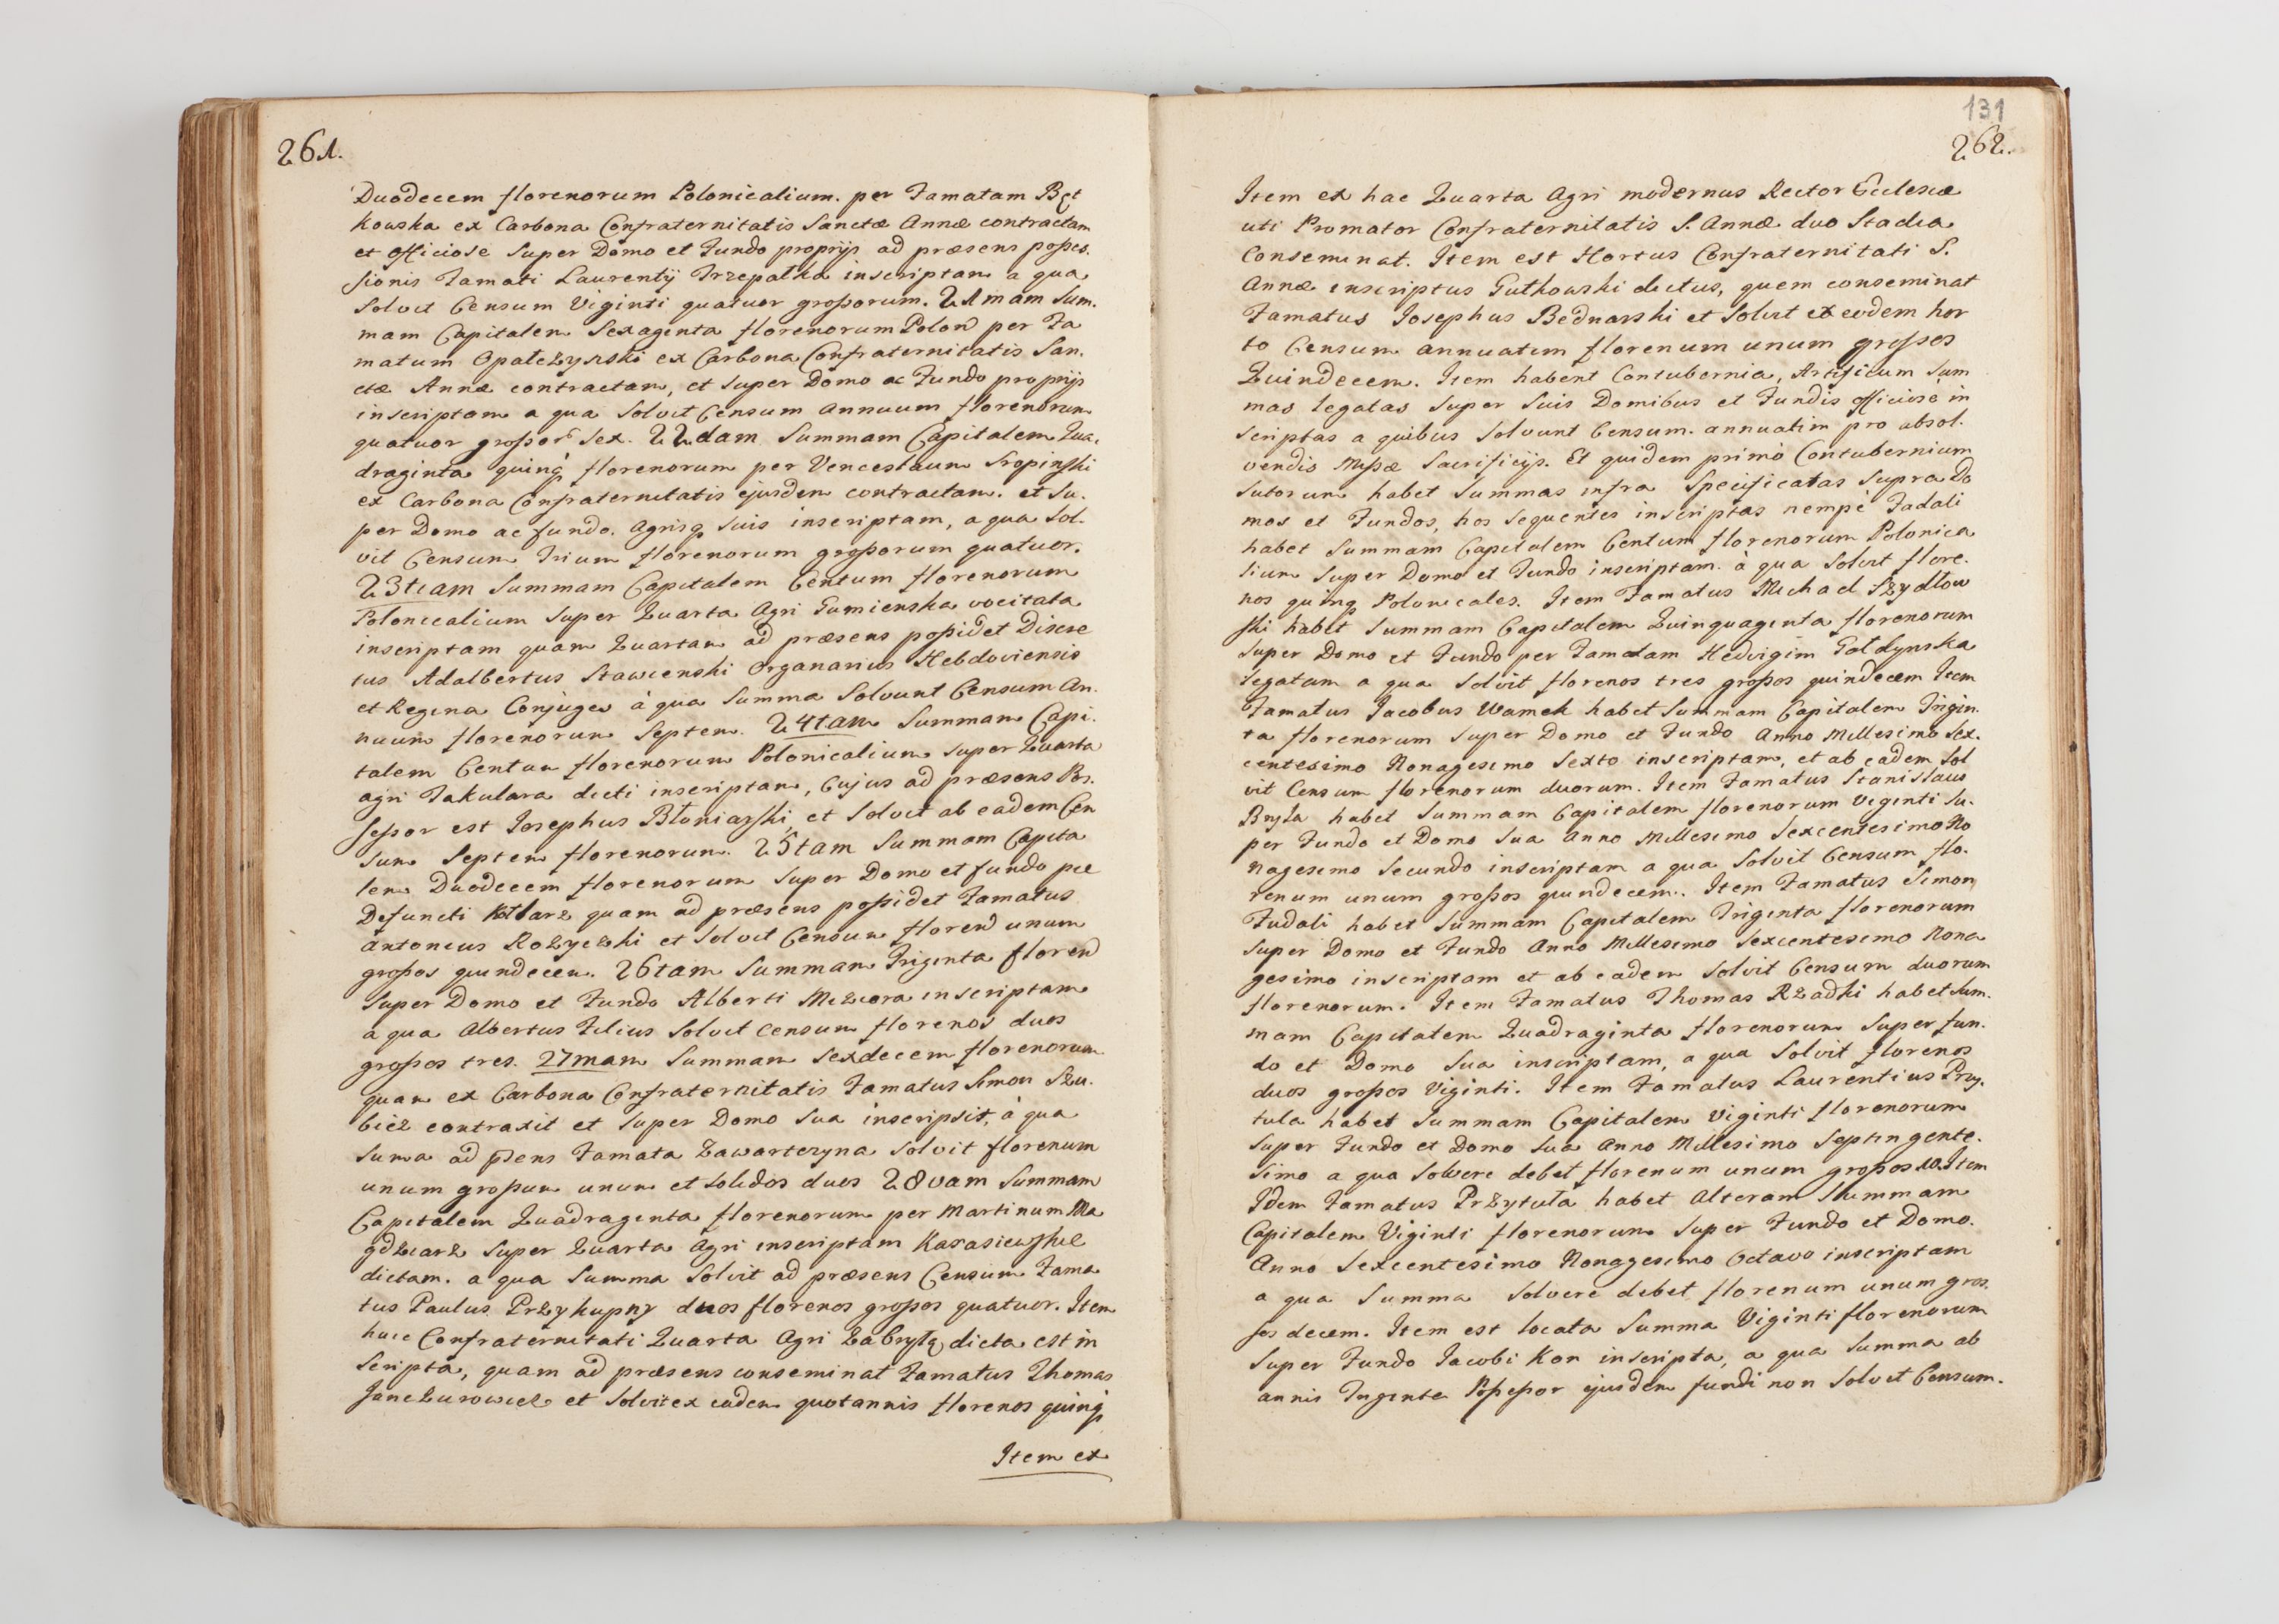 261.
Duodecem florenorum Polonicalium. per Famatam Bęt
kowska ex Carbona Confraternitatis Sanctæ Annæ contractam
et officiose super Domo et Fundo proprijs ad præsens posses.
sionis Famati Laurentij Trzepałka inscriptam a qua
solvit Censum Viginti quatuor grossorum. 21mam Sum.
mam Capitalem Sexaginta florenorum Polon per Fa
matum Opałczynski ex Carbona Confraternitatis San.
ctæ Annæ contractam, et super Domo ac Fundo proprijs
inscriptam a qua solvit Censum annuum florenorum
quatuor grossor sex. 22dam Summam Capitalem Qua.
draginta quinq florenorum per Venceslaum Sropinski
ex Carbona Confraternitatis ejusdem contractam. et su.
per Domo ac fundo. agrisq suis inscriptam, a qua sol.
vit Censum Trium florenorum grossorum quatuor.
23tiam Summam Capitalem Centum florenorum
Polonicalium super Quarta Agri Gumienska vocitata
inscriptam quam Quartam ad præsens possidet Discre
tus Adalbertus Stawienski Organarius Hebdoviensis
et Regina Conjuges à qua Summa Solvunt Censum An.
nuum florenorum Septem. 24tam Summam Capi.
talem Centum florenorum Polonicalium super Quarta
agri Takulara dicti inscriptam, Cujus ad præsens Pos.
sessor est Josephus Błoniarski et solvit ab eadem Cen
sum Septem florenorum. 25tam Summam Capita
lem Duodecem florenorum super Domo et fundo pie
Defuncti Kotlarz quam ad præsens possidet Famatus
Antonius Rozyczki et solvit Censum floren unum
grossos quindecem. 26tam Summam Triginta floren
super Domo et Fundo Alberti Mizwora inscriptam
a qua Albertus Filius solvit censum florenos duos
grossos tres. 27mam Summam Sexdecem florenorum
quam ex Carbona Confraternitatis Famatus Simon Szu.
bicz contraxit et super Domo sua inscripsit, à qua
suma ad psens Famata Zawartczyna solvit florenum
unum grossum unum et solidos duos 28vam Summam
Capitalem Quadraginta florenorum per Martinum Ma
gdziarz super Quarta Agri inscriptam Karasiewskie
dictam. a qua Summa solvit ad præsens Censum Fama
tus Paulus Przykupny duos florenos grossos quatuor. Item
huic Confraternitati Quarta Agri Zabryłą dicta est in
scripta, quam ad præsens conseminat Famatus Thomas
Janczurowicz et solvit ex eadem quotannis florenos quinq
Item ex
131
262.
Item ex hac Quarta Agri modernus Rector Ecclesiæ
uti Promator Confraternitatis S. Annæ duo Stadia
Conseminat. Item est Hortus Confraternitati S.
Annæ inscriptus Gutkowski dictus, quem conseminat
Famatus Josephus Bednarski et solvit ex eodem hor
to Censum annuatim florenum unum grossos
Quindecem. Item habent Contubernia, Artificum Sum
mas legatas super suis Domibus et Fundis officiosè in
scriptas a quibus solvunt Censum. annuatim pro absol.
vendis Missæ Sacrificijs. Et quidem primò Contubernium
Sutorum habet Summas infra Specificatas Supra Do
mos et Fundos, hos sequentes inscriptas nempè Fudali
habet Summam Capitalem Centum florenorum Polonica
lium super Domo et Fundo inscriptam. à qua solvit flore.
nos quinq Polonicales. Item Famatus Michael Szydłow
ski habet Summam Capitalem Quinquaginta florenorum
super Domo et Fundo per Famatam Hedvigim Gałdynska
legatam a qua solvit florenos tres grossos quindecem Item
Famatus Jacobus Wamek habet Summam Capitalem Trigin.
ta florenorum super Domo et Fundo Anno Millesimo Sex.
centesimo Nonagesimo Sexto inscriptam, et ab eadem Sol
vit Censum florenorum duorum. Item Famatus Stanislaus
Bryła habet Summam Capitalem florenorum viginti su.
per Fundo et Domo sua Anno Millesimo Sexcentesimo No
nagesimo Secundo inscriptam a qua solvit Censum flo.
renum unum grossos quindecem. Item Famatus Simon
Fudali habet Summam Capitalem Triginta florenorum
super Domo et Fundo Anno Millesimo Sexcentesimo Nona
gesimo inscriptam et ab eadem solvit Censum duorum
florenorum. Item Famatus Thomas Rzadki habet Sum.
mam Capitatem Quadraginta florenorum super fun.
do et Domo sua inscriptam, a qua solvit florenos
duos grossos Viginti. Item Famatus Laurentius Przy.
tula habet Summam Capitalem Viginti florenorum
super Fundo et Domo sua Anno Millesimo Septingente.
simo a qua solvere debet florenum unum grossos 10. Item
Idem Famatus Przytuła habet Alteram Summam
Capitalem Viginti florenorum super Fundo et Domo.
Anno Sexcentesimo Nonagesimo Octavo inscriptam
a qua Summa solvere debet florenum unum gros.
sos decem. Item est locata Summa Viginti florenorum
super Fundo Jacobi Kon inscripta, a qua Summa ab
annis Triginta Possessor ejusdem fundi non solvit Censum.